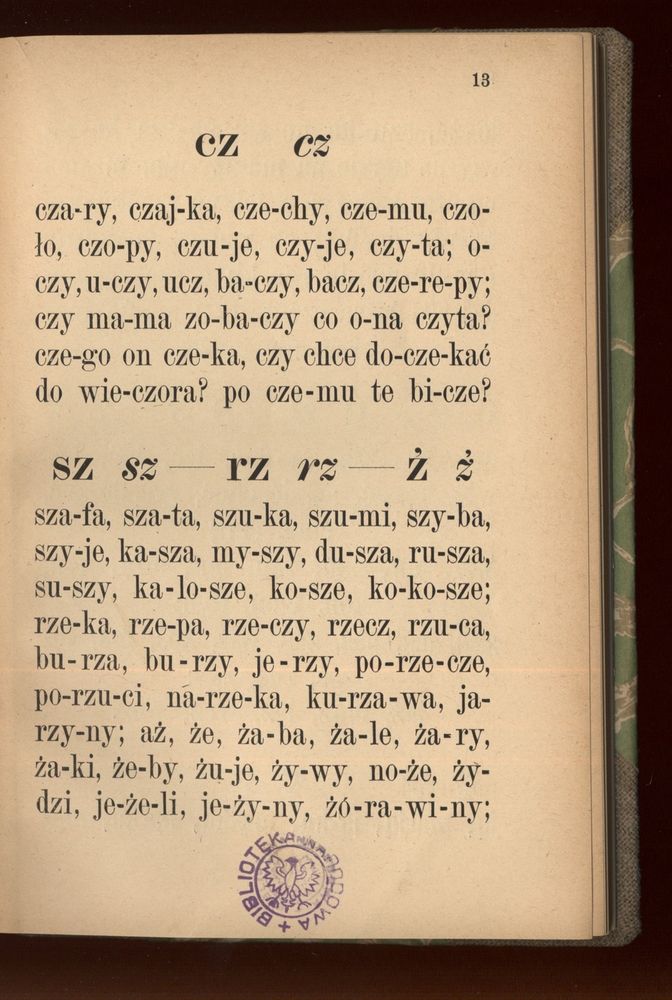 13
cz cz
cza-ry, czaj-ka, cze-chy, cze-mu, czo-
ło, czo-py, czu-je, czy-je, czy-ta; o-
czy, u-czy, ucz, ba-czy, bacz, cze-re-py;
czy ma-ma zo-ba-czy co o-na czyta?
cze-go on cze-ka, czy chce do-cze-kać
do wie-czora? po cze-mu te bi-cze?
sz sz — rz rz — ż ż
sza-fa, sza-ta, szu-ka, szu-mi, szy-ba,
szy-je, ka-sza, my-szy, du-sza, ru-sza,
su-szy, ka-lo-sze, ko-sze, ko-ko-sze;
rze-ka, rze-pa, rze-czy, rzecz, rzu-ca,
bu-rza, bu-rzy, je-rzy, po-rze-cze,
po-rzu-ci, na-rze-ka, ku-rza-wa, ja-
rzy-ny; aż, że, ża-ba, ża-le, ża-ry,
ża-ki, że-by, żu-je, ży-wy, no-że, ży-
dzi, je-że-li, je-ży-ny, żó-ra-wi-ny;
BIBLIOTEKA NARODOWA